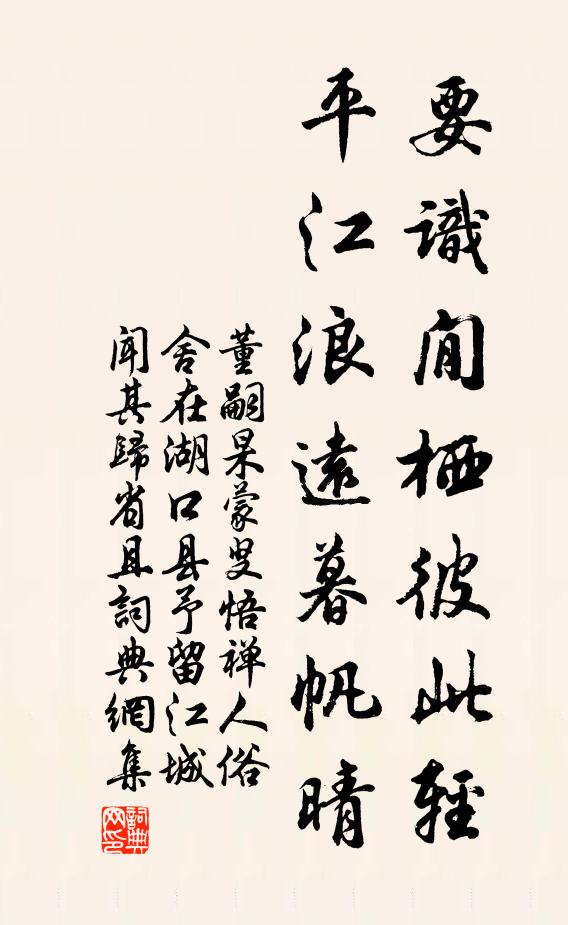 要識閒栖彼此輕
平江浪遠暮帆晴
董嗣杲蒙叟悟禅人俗
舍在湖口县予留江城
闻其歸省且詞典網集
詞典
网印